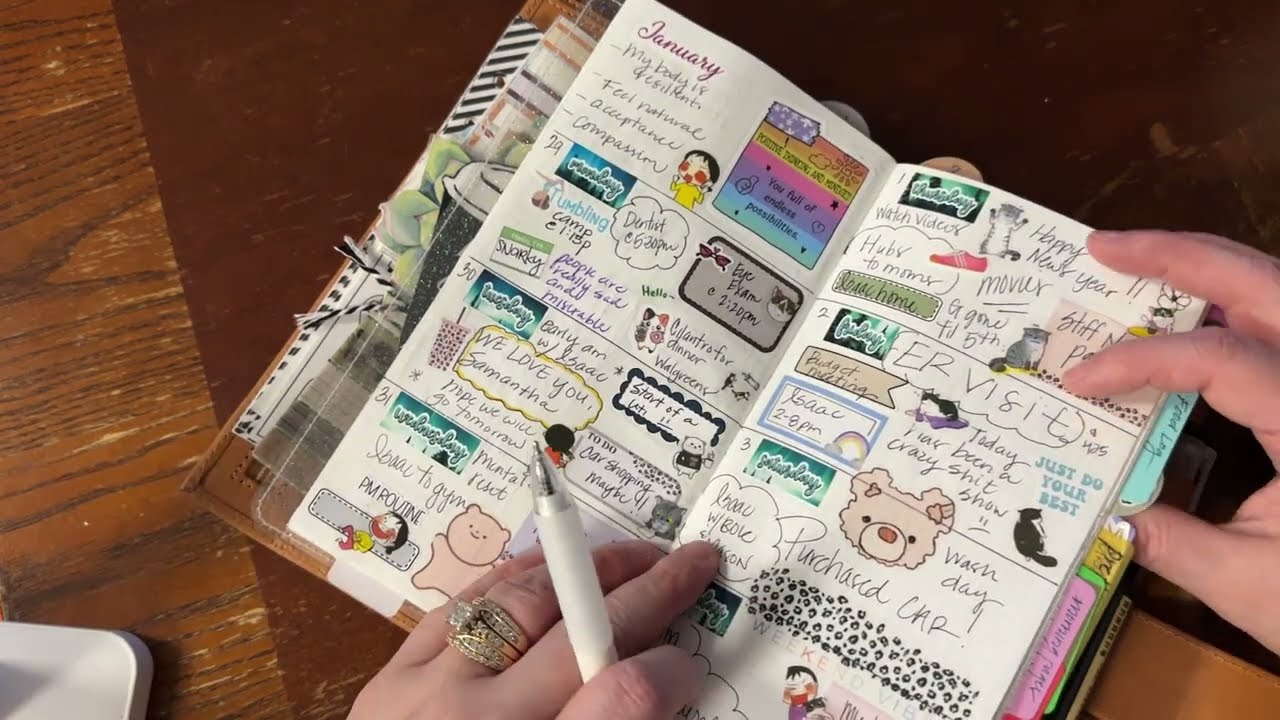 January
- My body is
resilient.
- Feel natural
- acceptance
- Compassion
POSITIVE THINKING AND MINDSET
You full of
endless
possibilities.
29
monday
TUMBLING
camp
Dentist
@ 5:30pm
Hello, I'm
SNARKY
people are
really sad
and
miserable
Eye
Exam
@ 2:20pm
30
tuesday
Early am
w/ Isaac
WE LOVE YOU
Samantha
* nope we will
go tomorrow!
Hello-
Cilantro for
dinner
Walgreens
* Start of a
31
wednesday
Isaac to gym
Mental
reset
PM ROUTINE
TO DO
Car shopping
Maybe !!
1
thursday
Watch Videos
Hubs
to moms
Isaac home
Happy
New year !!
movies
G gone
til 5th.
Stiff
2
friday
Budget
meeting
Isaac
2-8pm
ER Visit
Today
has been a
crazy shit
show
& UPS
JUST DO
YOUR
BEST
3
saturday
Isaac
Purchased CAR!
Wash
day
WEEKEND VIB
Food Log